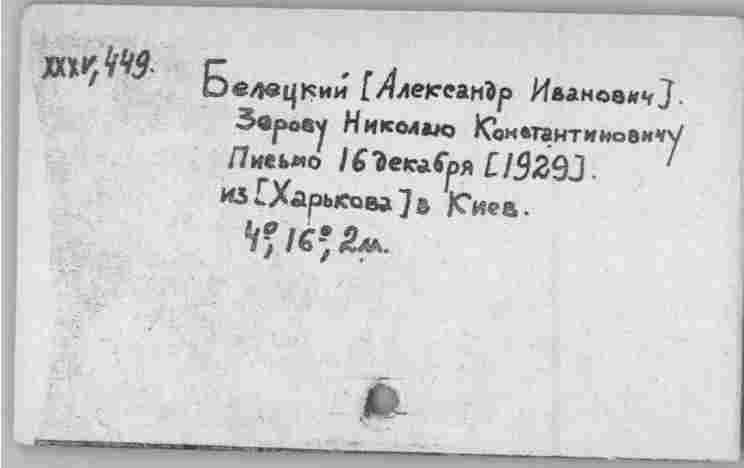 XXXV, 449.
Белецкий [Александр Иванович].
Зерову Николаю Константиновичу
Письмо 16 декабря [1929].
из [Харькова] в Киев.
4º, 16º, 2 л.